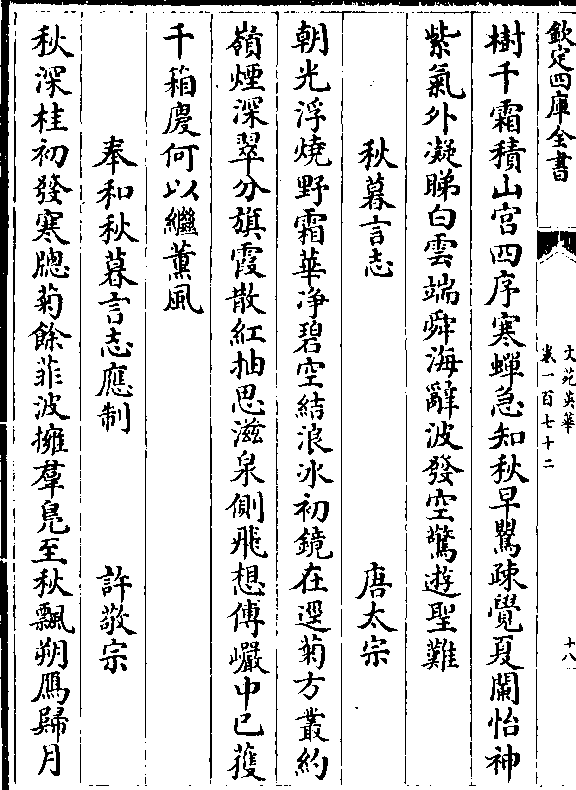 欽定四庫全書
文苑英華
卷一百七十二
十八
樹千霜積山宫四序寒蟬急知秋早鶯疎覺夏闌怡神
紫氣外凝睇白雲端舜海辭波發空驚遊聖難
秋暮言志 唐太宗
朝光浮燒野霜華浄碧空結浪冰初鏡在逕菊方叢約
嶺煙深翠分旗霞散紅抽思滋泉側飛想傅巖中已獲
千箱慶何以繼薰風
奉和秋暮言志應制 許敬宗
秋深桂初發寒牕菊餘菲波擁羣鳧至秋飄朔鴈歸月